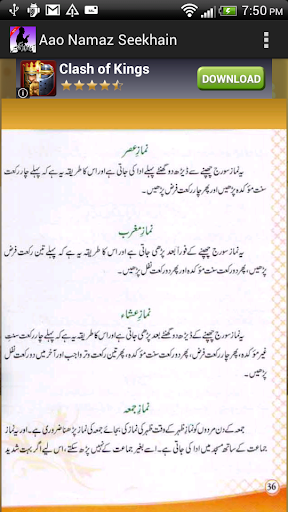 7:50 PM
Aao Namaz Seekhain
Clash of Kings
DOWNLOAD
نمازِ عصر
یہ نماز سورج چھپنے سے ڈیڑھ دو گھنٹے پہلے ادا کی جاتی ہے اور اس کا طریقہ یہ ہے کہ پہلے چار رکعت
سنت مؤکدہ پڑھیں اور پھر چار رکعت فرض پڑھیں۔
نمازِ مغرب
یہ نماز سورج چھپنے کے فوراً بعد پڑھی جاتی ہے اور اس کا طریقہ یہ ہے کہ پہلے تین رکعت فرض
پڑھیں، پھر دو رکعت سنت مؤکدہ اور پھر دو رکعت نفل پڑھیں۔
نمازِ عشاء
یہ نماز سورج چھپنے کے ڈیڑھ دو گھنٹے بعد پڑھی جاتی ہے اور اس کا طریقہ یہ ہے کہ پہلے چار رکعت سنت
غیر مؤکدہ پڑھیں، پھر چار رکعت فرض، پھر دو رکعت سنت مؤکدہ، پھر دو رکعت نفل، پھر تین رکعت وتر واجب اور آخر میں دو رکعت
نفل پڑھیں۔
نمازِ جمعہ
جمعہ کے دن مردوں کو نماز ظہر کے وقت ظہر کی نماز کی بجائے جمعہ کی نماز پڑھنا ضروری ہے۔ اور یہ نماز
جماعت کے ساتھ مسجد میں ادا کی جاتی ہے۔ اسے بغیر جماعت کے نہیں پڑھ سکتے، اس لیے اگر بہت شدید
36